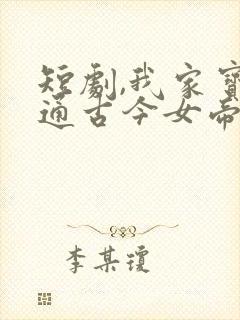 短劇,我家寶
通古今女帝
李某瓊